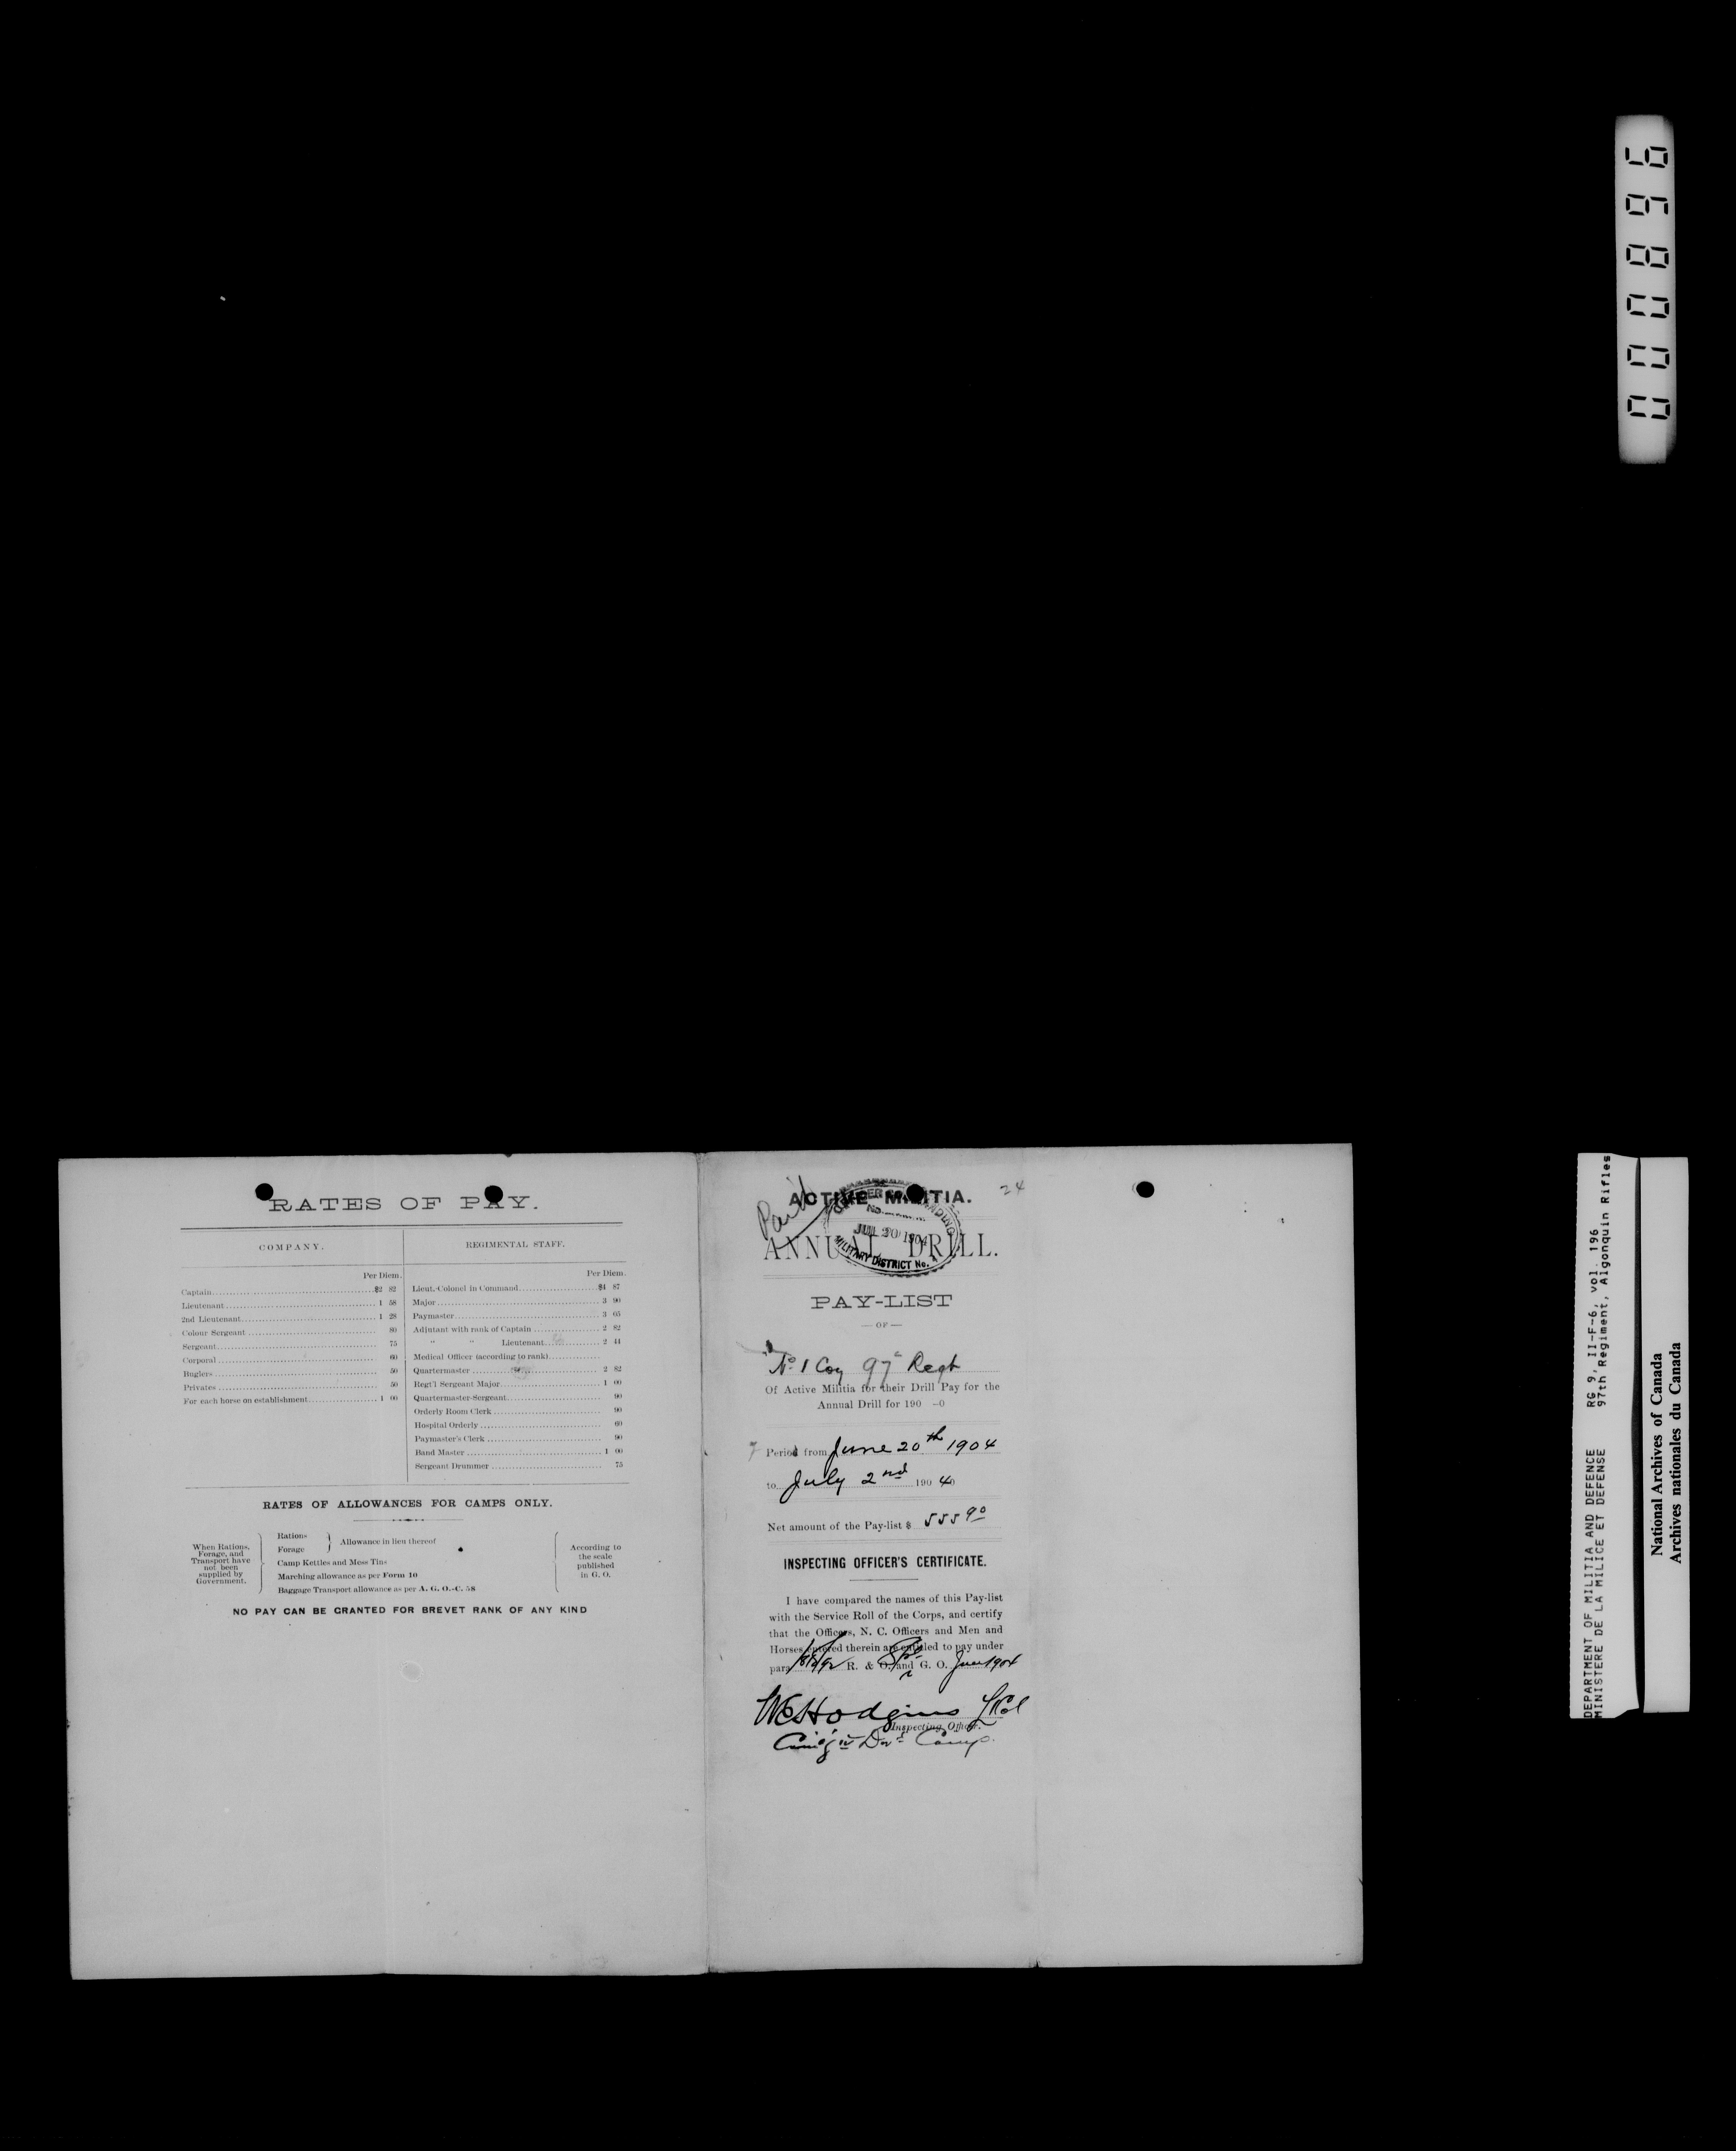 RATES OF PAY.
COMPANY.
Per Diem.
Captain $2 82
Lieutenant 1 58
2nd Lieutenant 1 28
Colour Sergeant 80
Sergeant 75
Corporal 60
Buglers 50
Privates 50
For each horse on establishment 1 00
REGIMENTAL STAFF.
Per Diem.
Lieut.-Colonel in Command $4 87
Major 3 90
Paymaster 3 05
Adjutant with rank of Captain 2 82
" " Lieutenant 2 44
Medical Officer (according to rank)
Quartermaster 2 82
Regt'l Sergeant Major 1 00
Quartermaster-Sergeant 90
Orderly Room Clerk 90
Hospital Orderly 60
Paymaster's Clerk 90
Band Master 1 00
Sergeant Drummer 75
RATES OF ALLOWANCES FOR CAMPS ONLY.
When Rations, Forage, and Transport have not been supplied by Government.
Rations
Forage
Allowance in lieu thereof
Camp Kettles and Mess Tins
Marching allowance as per Form 10
Baggage Transport allowance as per A. G. O.-C. 58
According to the scale published in G. O.
NO PAY CAN BE GRANTED FOR BREVET RANK OF ANY KIND
24
Paid
ACTIVE MILITIA.
JUL 20 1904
MILITARY DISTRICT No. 4
ANNUAL DRILL.
PAY-LIST
— OF —
No. 1 Coy 97th Regt
Of Active Militia for their Drill Pay for the
Annual Drill for 190 -0
Period from June 20th 1904
to July 2nd 190 4 0
Net amount of the Pay-list $ 555 90
INSPECTING OFFICER'S CERTIFICATE.
I have compared the names of this Pay-list
with the Service Roll of the Corps, and certify
that the Officers, N. C. Officers and Men and
Horses entered therein are entitled to pay under
para R. & O. and G. O. June 1904
WE Hodgins Lt Col
Inspecting Officer.
Camp
000896
DEPARTMENT OF MILITIA AND DEFENCE RG 9, II-F-6, vol. 196
MINISTERE DE LA MILICE ET DEFENSE 97th Regiment, Algonquin Rifles
National Archives of Canada
Archives nationales du Canada